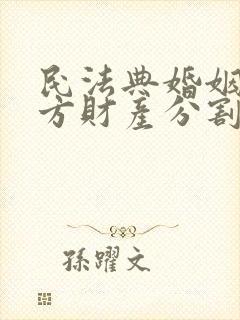 民法典婚姻
方財產分割
孫躍文